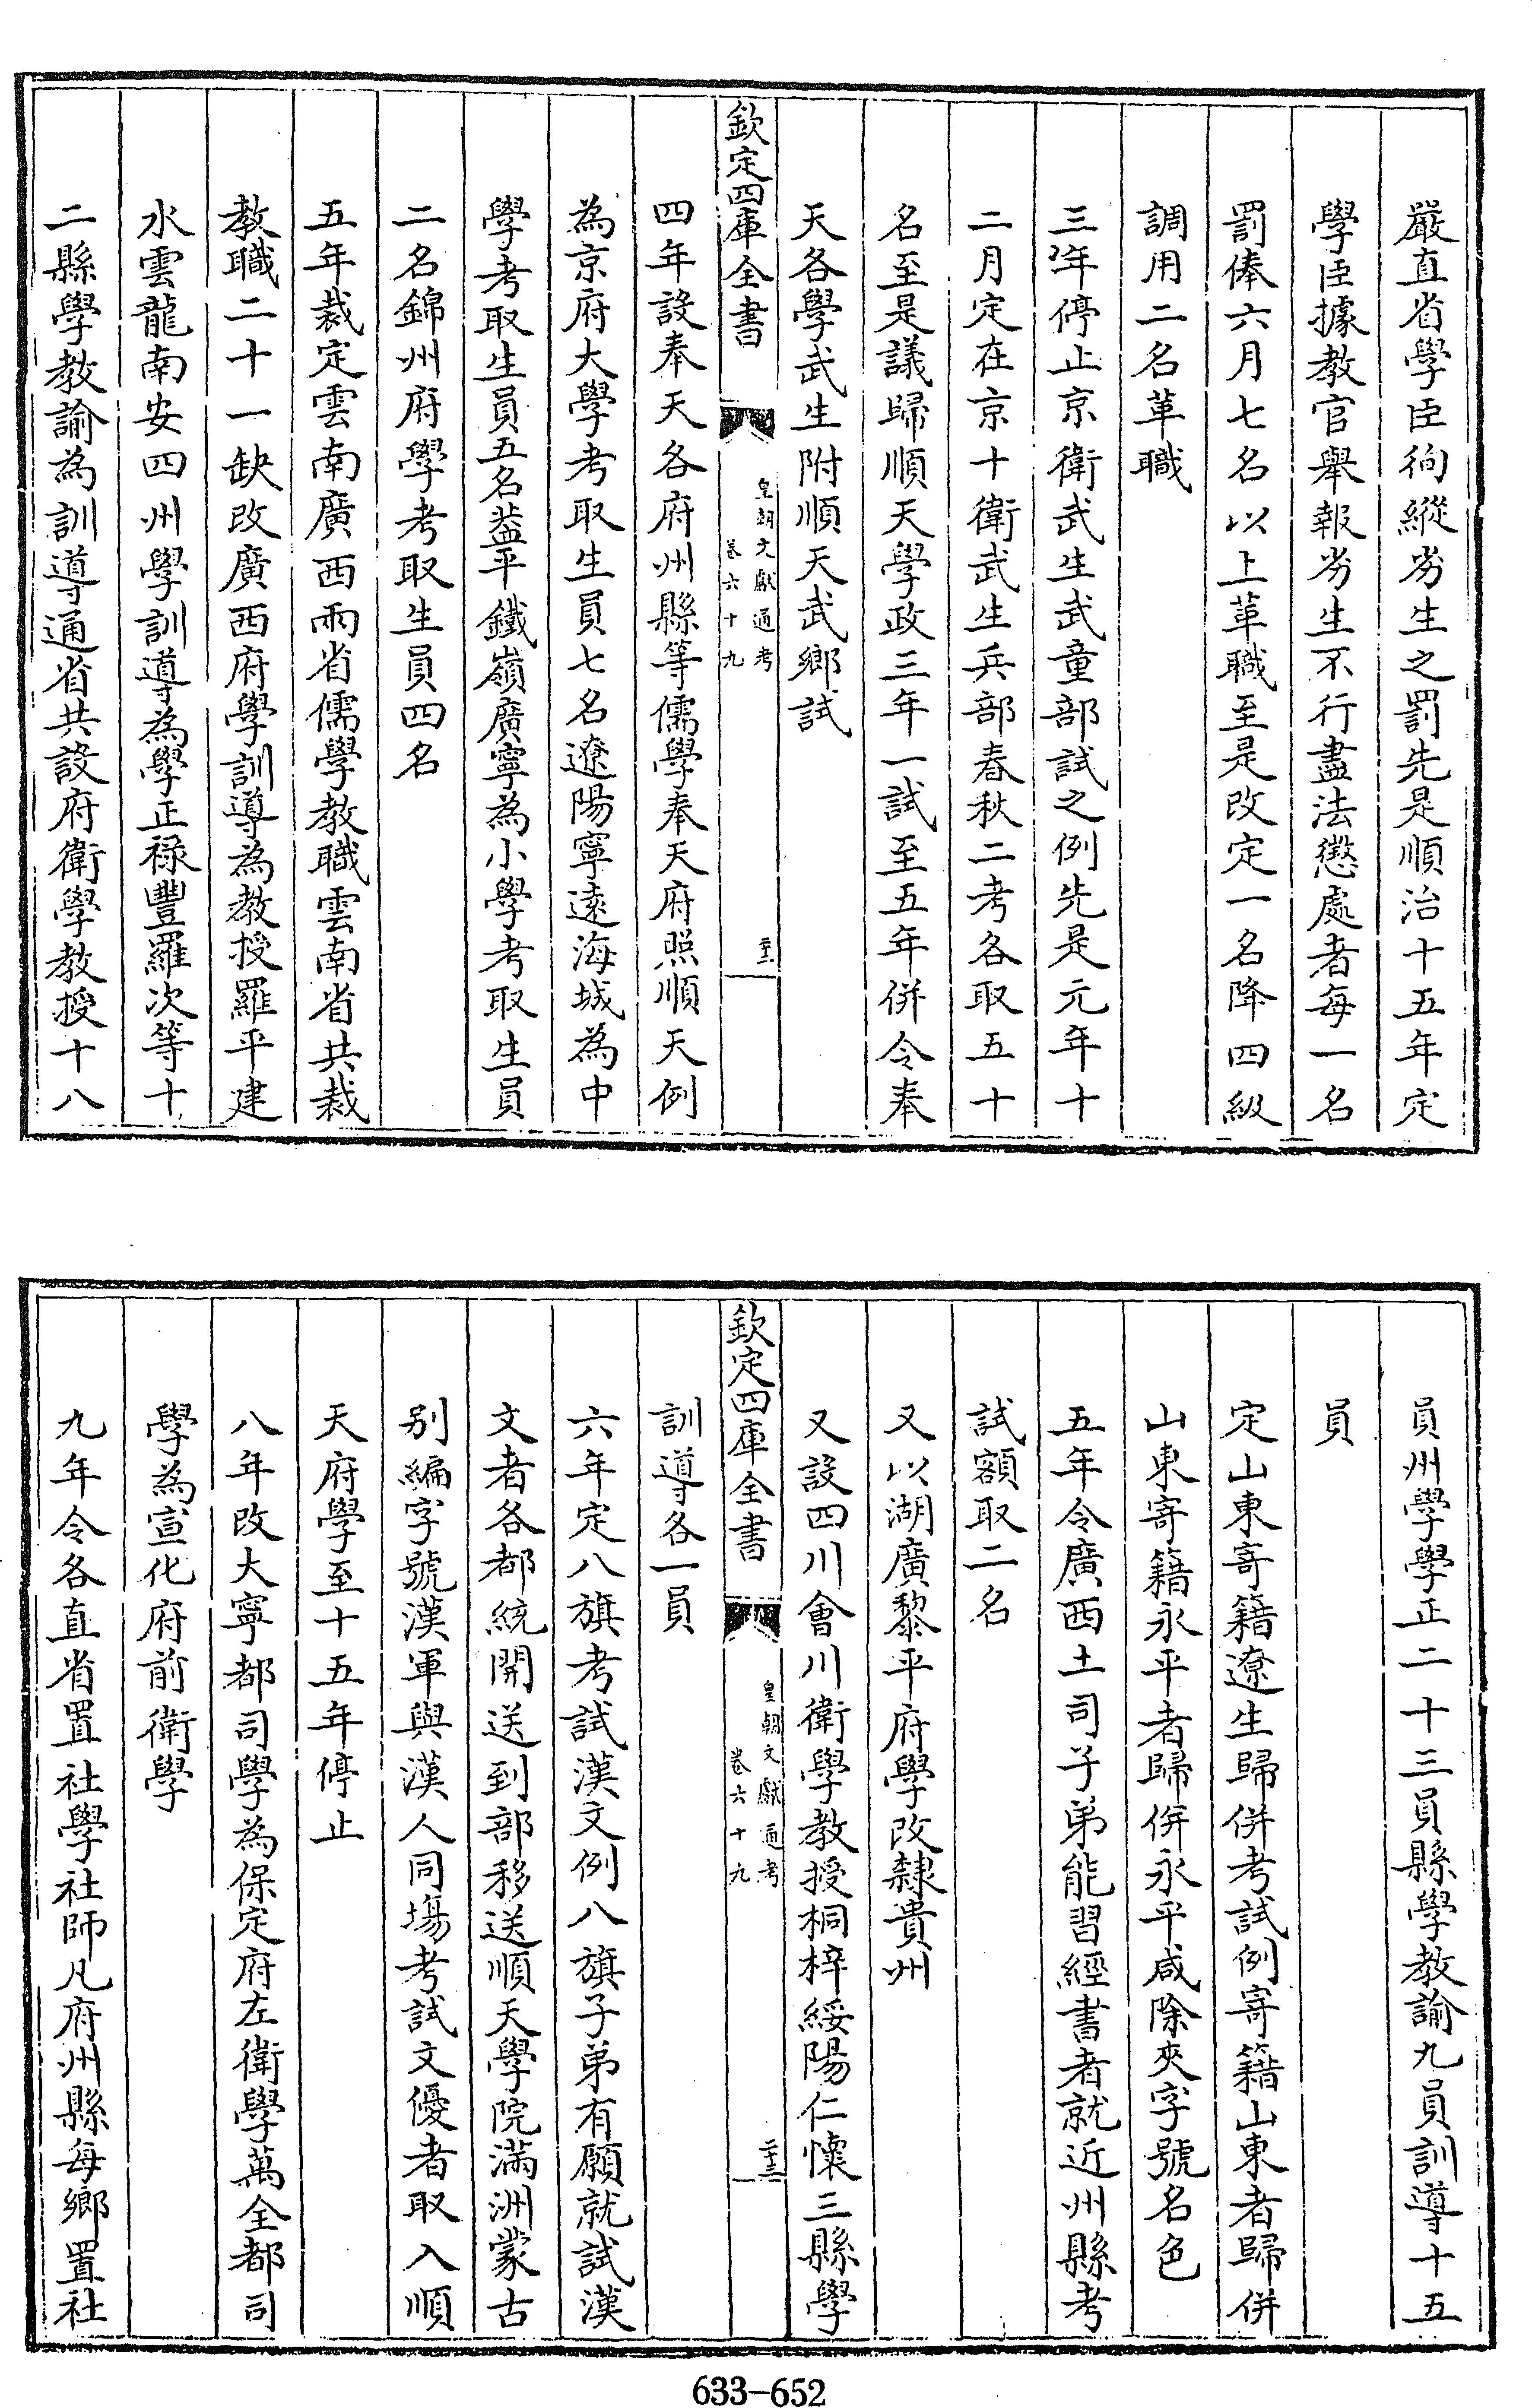 嚴直省學臣徇縱劣生之罰先是順治十五年定
學臣據教官舉報劣生不行盡法懲處者每一名
罰俸六月七名以上革職至是改定一名降四級
調用二名革職
三年停止京衛武生武童部試之例先是元年十
二月定在京十衛武生兵部春秋二考各取五十
名至是議歸順天學政三年一試至五年併令奉
天各學武生附順天武鄉試
欽定四庫全書
皇朝文獻通考
卷六十九
二十二
四年設奉天各府州縣等儒學奉天府照順天例
為京府大學考取生員七名遼陽寧遠海城為中
學考取生員五名葢平鐵嶺廣寧為小學考取生員
二名錦州府學考取生員四名
五年裁定雲南廣西兩省儒學教職雲南省共裁
教職二十一缺改廣西府學訓導為教授羅平建
水雲龍南安四州學訓導為學正祿豐羅次等十
二縣學教諭為訓導通省共設府衛學教授十八
員州學學正二十三員縣學教諭九員訓導十五
員
定山東寄籍遼生歸併考試例寄籍山東者歸併
山東寄籍永平者歸併永平咸除夾字號名色
五年令廣西土司子弟能習經書者就近州縣考
試額取二名
又以湖廣黎平府學改隸貴州
又設四川會川衛學教授桐梓綏陽仁懷三縣學
欽定四庫全書
皇朝文獻通考
卷六十九
二十三
訓導各一員
六年定八旗考試漢文例八旗子弟有願就試漢
文者各都統開送到部移送順天學院滿洲蒙古
别編字號漢軍與漢人同場考試文優者取入順
天府學至十五年停止
八年改大寧都司學為保定府左衛學萬全都司
學為宣化府前衛學
九年令各直省置社學社師凡府州縣每鄉置社
633-652